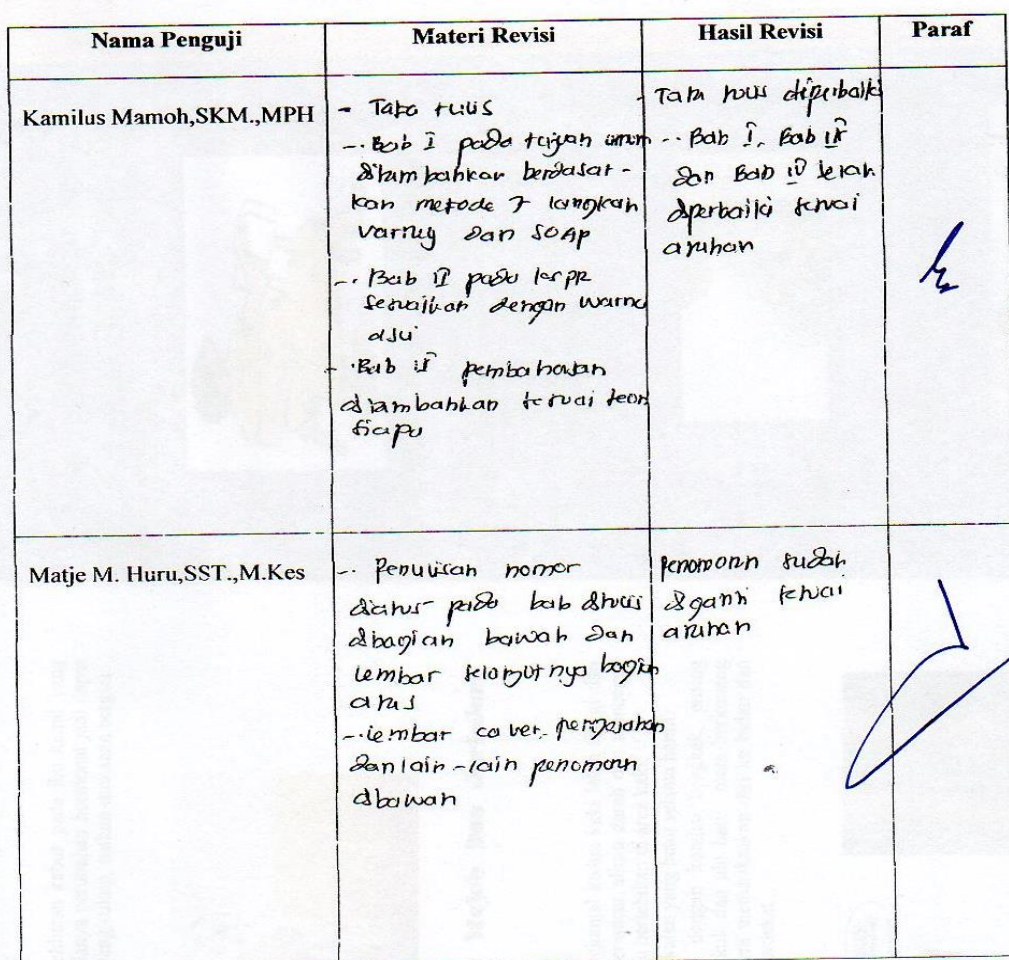 Nama Penguji Materi Revisi Hasil Revisi Paraf
Kamilus Mamoh,SKM.,MPH
- Tata tulis
-. Bab I pada tujuan umum
ditambahkan berdasar-
kan metode 7 langkah
varney dan SOAP
-. Bab II pada
sesuaikan dengan warna
asli
-. Bab pembahasan
ditambahkan sesuai teori
- Tata tulis diperbaiki
-. Bab I, Bab
dan Bab IV telah
diperbaiki sesuai
arahan
Matje M. Huru,SST.,M.Kes
-. Penulisan nomor
diatas pada bab ditulis
dibagian bawah dan
lembar selanjutnya bagian
atas
-. lembar cover, pengesahan
dan lain-lain penomoran
dibawah
Penomoran sudah
diganti sesuai
arahan